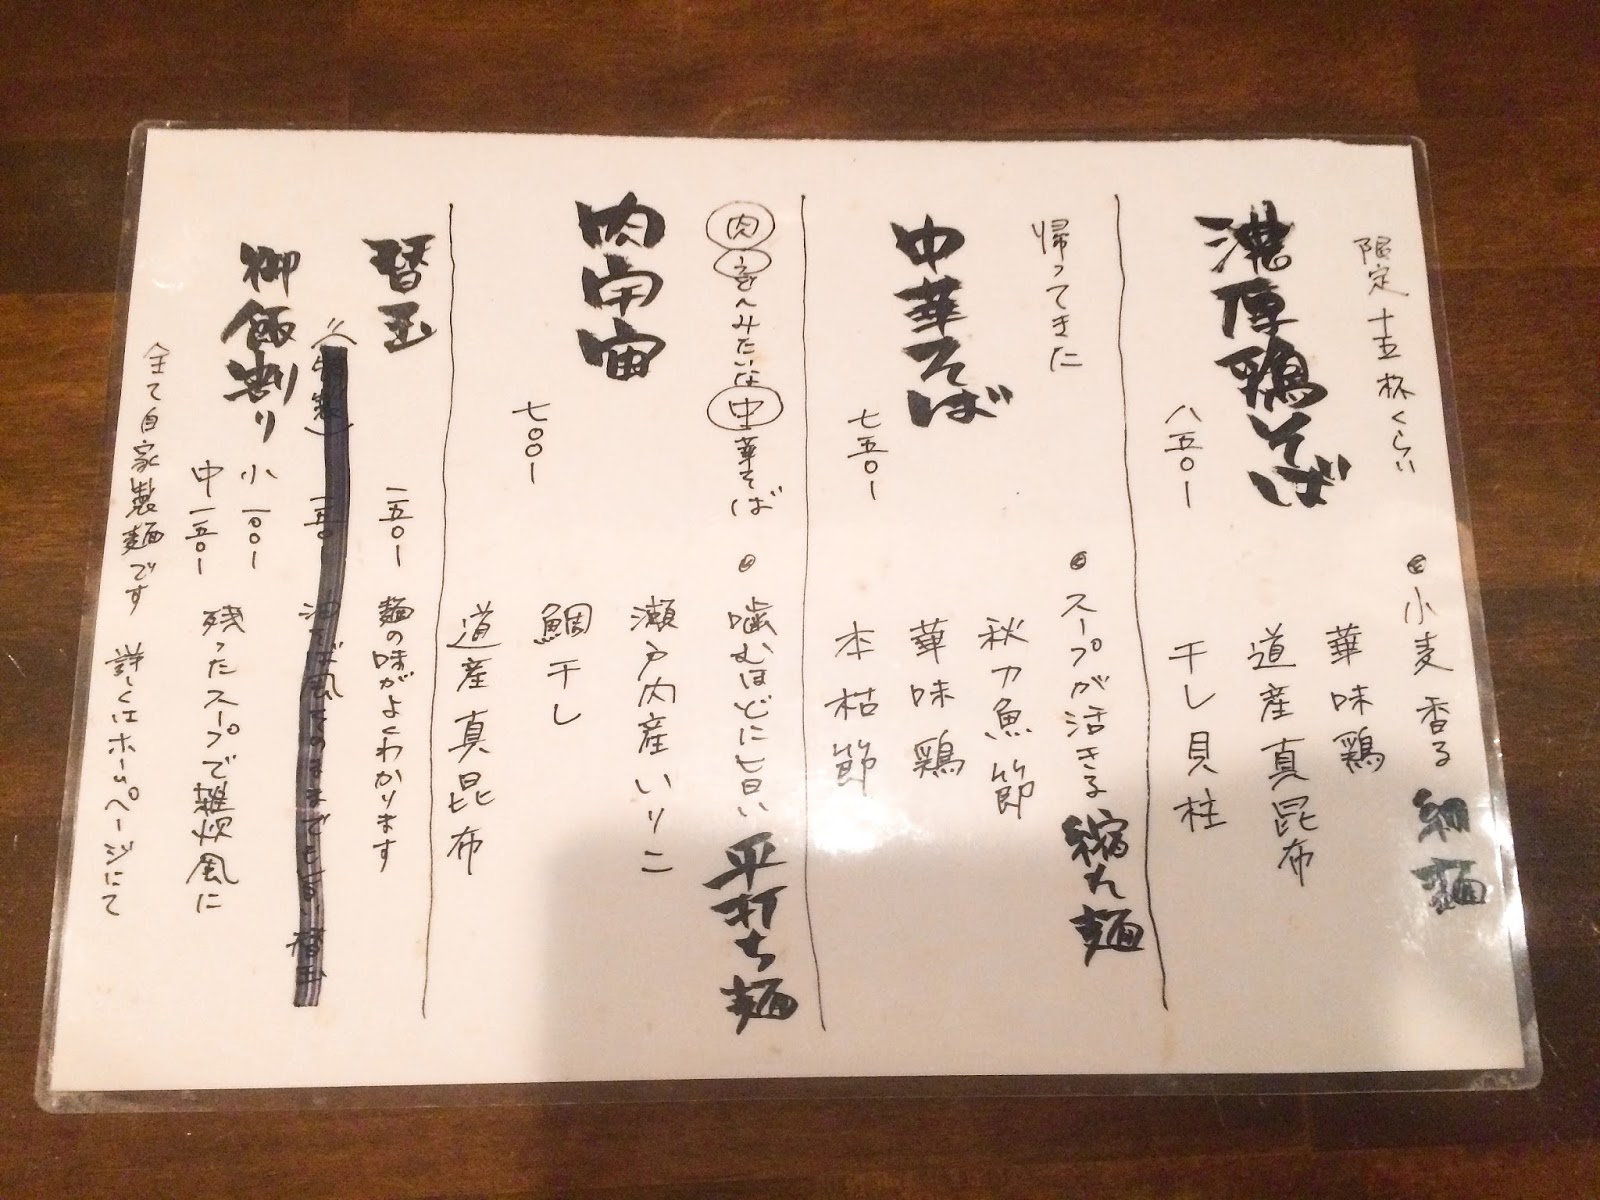 限定十五杯くらい
濃厚鶏そば
八五〇ー
◎小麦香る細麺
華味鶏
道産真昆布
干し貝柱
帰ってきた
中華そば
七五〇ー
◎スープが活きる縮れ麺
秋刀魚節
華味鶏
本枯節
肉うどんみたいな中華そば
肉宇宙
七〇〇ー
◎噛むほどに旨い平打ち麺
瀬戸内産いりこ
鯛干し
道産真昆布
替玉
一五〇ー
麺の味がよくわかります
〃
一五〇ー
油そば風でそのままでも旨い替玉
御飯割り
小一〇〇ー
中一五〇ー
残ったスープで雑炊風に
全て自家製麺です 詳しくはホームページにて